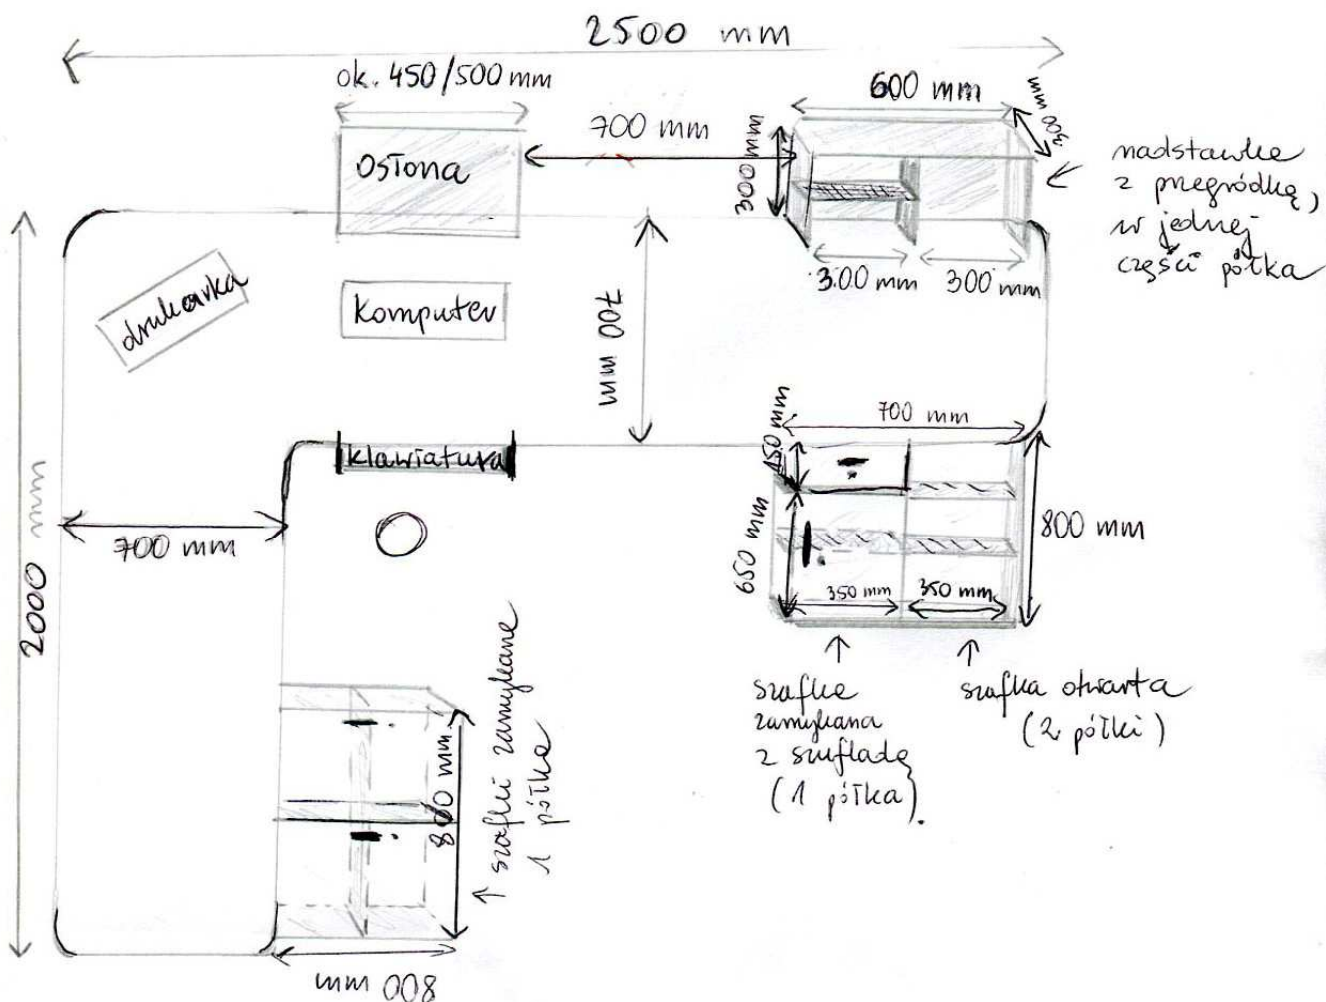 2500 mm
ok. 450/500 mm
600 mm
300 mm
700 mm
300 mm
osłona
nadstawke
z przegródką,
w jednej
części półka
300 mm
300 mm
drukarka
Komputer
700 mm
klawiatura
700 mm
150 mm
650 mm
800 mm
350 mm
350 mm
700 mm
2000 mm
szafke
zamykana
z szufladę
(1 półka).
szafka otwarta
(2 półki)
800 mm
szafki zamykane
1 półka
800 mm